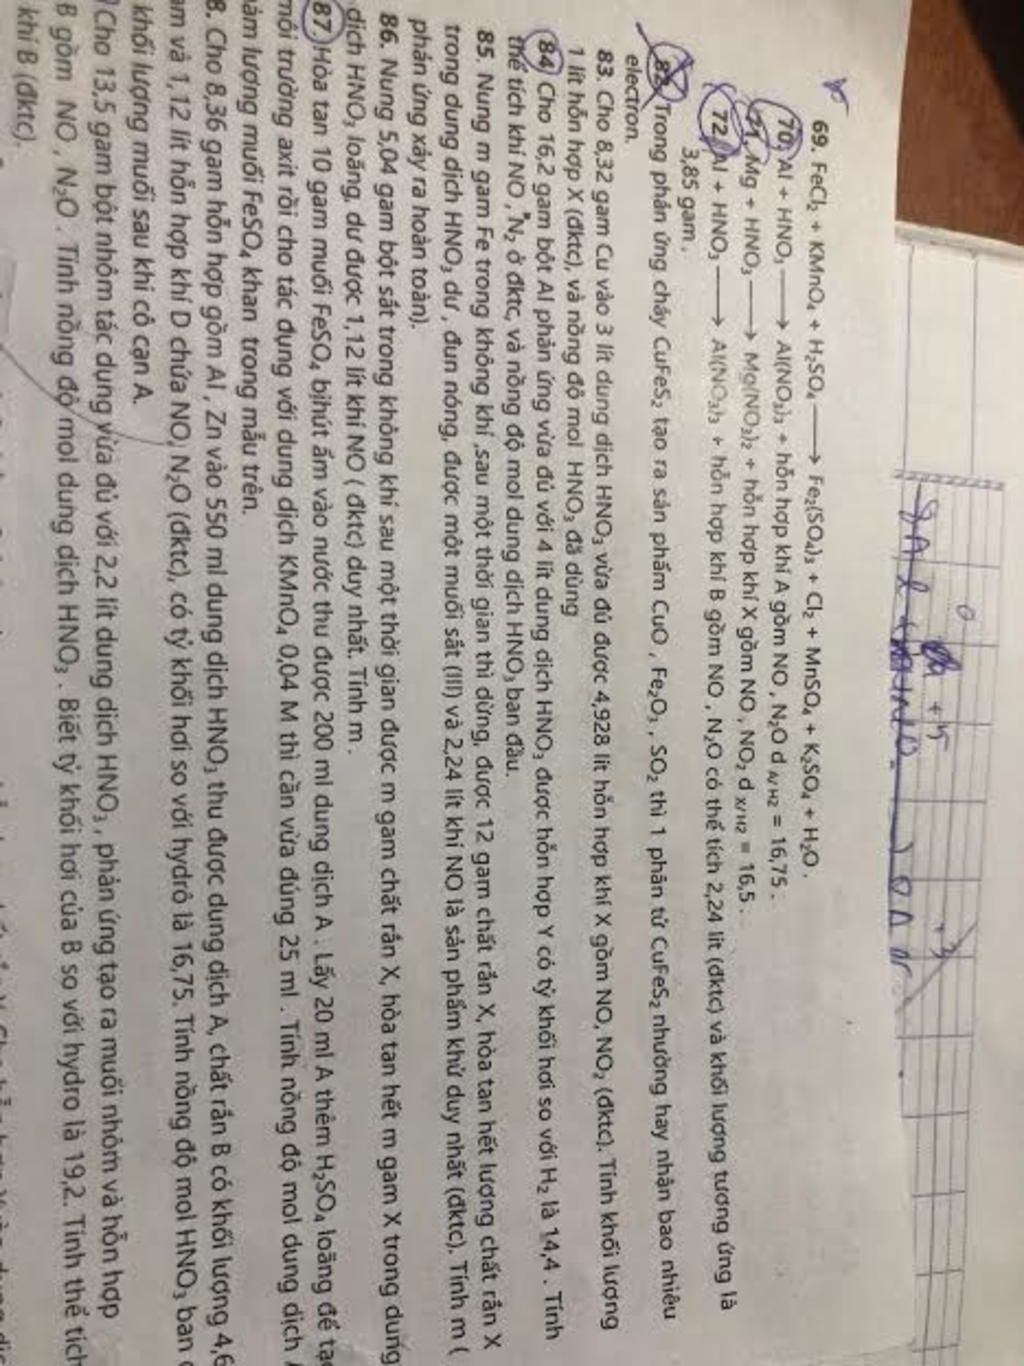 69. FeCl₂ + KMnO₄ + H₂SO₄ ⟶ Fe₂(SO₄)₃ + Cl₂ + MnSO₄ + K₂SO₄ + H₂O.
70. Al + HNO₃ ⟶ Al(NO₃)₃ + hỗn hợp khí A gồm NO, N₂O d A/H2 = 16,75.
71. Mg + HNO₃ ⟶ Mg(NO₃)₂ + hỗn hợp khí X gồm NO, NO₂ d X/H2 = 16,5.
72. Al + HNO₃ ⟶ Al(NO₃)₃ + hỗn hợp khí B gồm NO, N₂O có thể tích 2,24 lít (đktc) và khối lượng tương ứng là
3,85 gam.
82. Trong phản ứng cháy CuFeS₂ tạo ra sản phẩm CuO, Fe₂O₃, SO₂ thì 1 phân tử CuFeS₂ nhường hay nhận bao nhiêu
electron.
83. Cho 8,32 gam Cu vào 3 lít dung dịch HNO₃ vừa đủ được 4,928 lít hỗn hợp khí X gồm NO, NO₂ (đktc). Tính khối lượng
1 lít hỗn hợp X (đktc), và nồng độ mol HNO₃ đã dùng
84. Cho 16,2 gam bột Al phản ứng vừa đủ với 4 lít dung dịch HNO₃ được hỗn hợp Y có tỷ khối hơi so với H₂ là 14,4. Tính
thể tích khí NO, N₂ ở đktc, và nồng độ mol dung dịch HNO₃ ban đầu.
85. Nung m gam Fe trong không khí, sau một thời gian thì dừng, được 12 gam chất rắn X, hòa tan hết lượng chất rắn X
trong dung dịch HNO₃ dư, đun nóng, được một muối sắt (III) và 2,24 lít khí NO là sản phẩm khử duy nhất (đktc). Tính m (
phản ứng xảy ra hoàn toàn).
86. Nung 5,04 gam bột sắt trong không khí sau một thời gian được m gam chất rắn X, hòa tan hết m gam X trong dung
dịch HNO₃ loãng, dư được 1,12 lít khí NO (đktc) duy nhất. Tính m.
87. Hòa tan 10 gam muối FeSO₄ bị hút ẩm vào nước thu được 200 ml dung dịch A. Lấy 20 ml A thêm H₂SO₄ loãng để tạo
môi trường axit rồi cho tác dụng với dung dịch KMnO₄ 0,04 M thì cần vừa đúng 25 ml. Tính nồng độ mol dung dịch
hàm lượng muối FeSO₄ khan trong mẫu trên.
8. Cho 8,36 gam hỗn hợp gồm Al, Zn vào 550 ml dung dịch HNO₃ thu được dung dịch A, chất rắn B có khối lượng 4,6
am và 1,12 lít hỗn hợp khí D chứa NO, N₂O (đktc), có tỷ khối hơi so với hydrô là 16,75. Tính nồng độ mol HNO₃ ban
khối lượng muối sau khi cô cạn A.
Cho 13,5 gam bột nhôm tác dụng vừa đủ với 2,2 lít dung dịch HNO₃, phản ứng tạo ra muối nhôm và hỗn hợp
B gồm NO, N₂O. Tính nồng độ mol dung dịch HNO₃. Biết tỷ khối hơi của B so với hydro là 19,2. Tính thể tích
khí B (đktc).